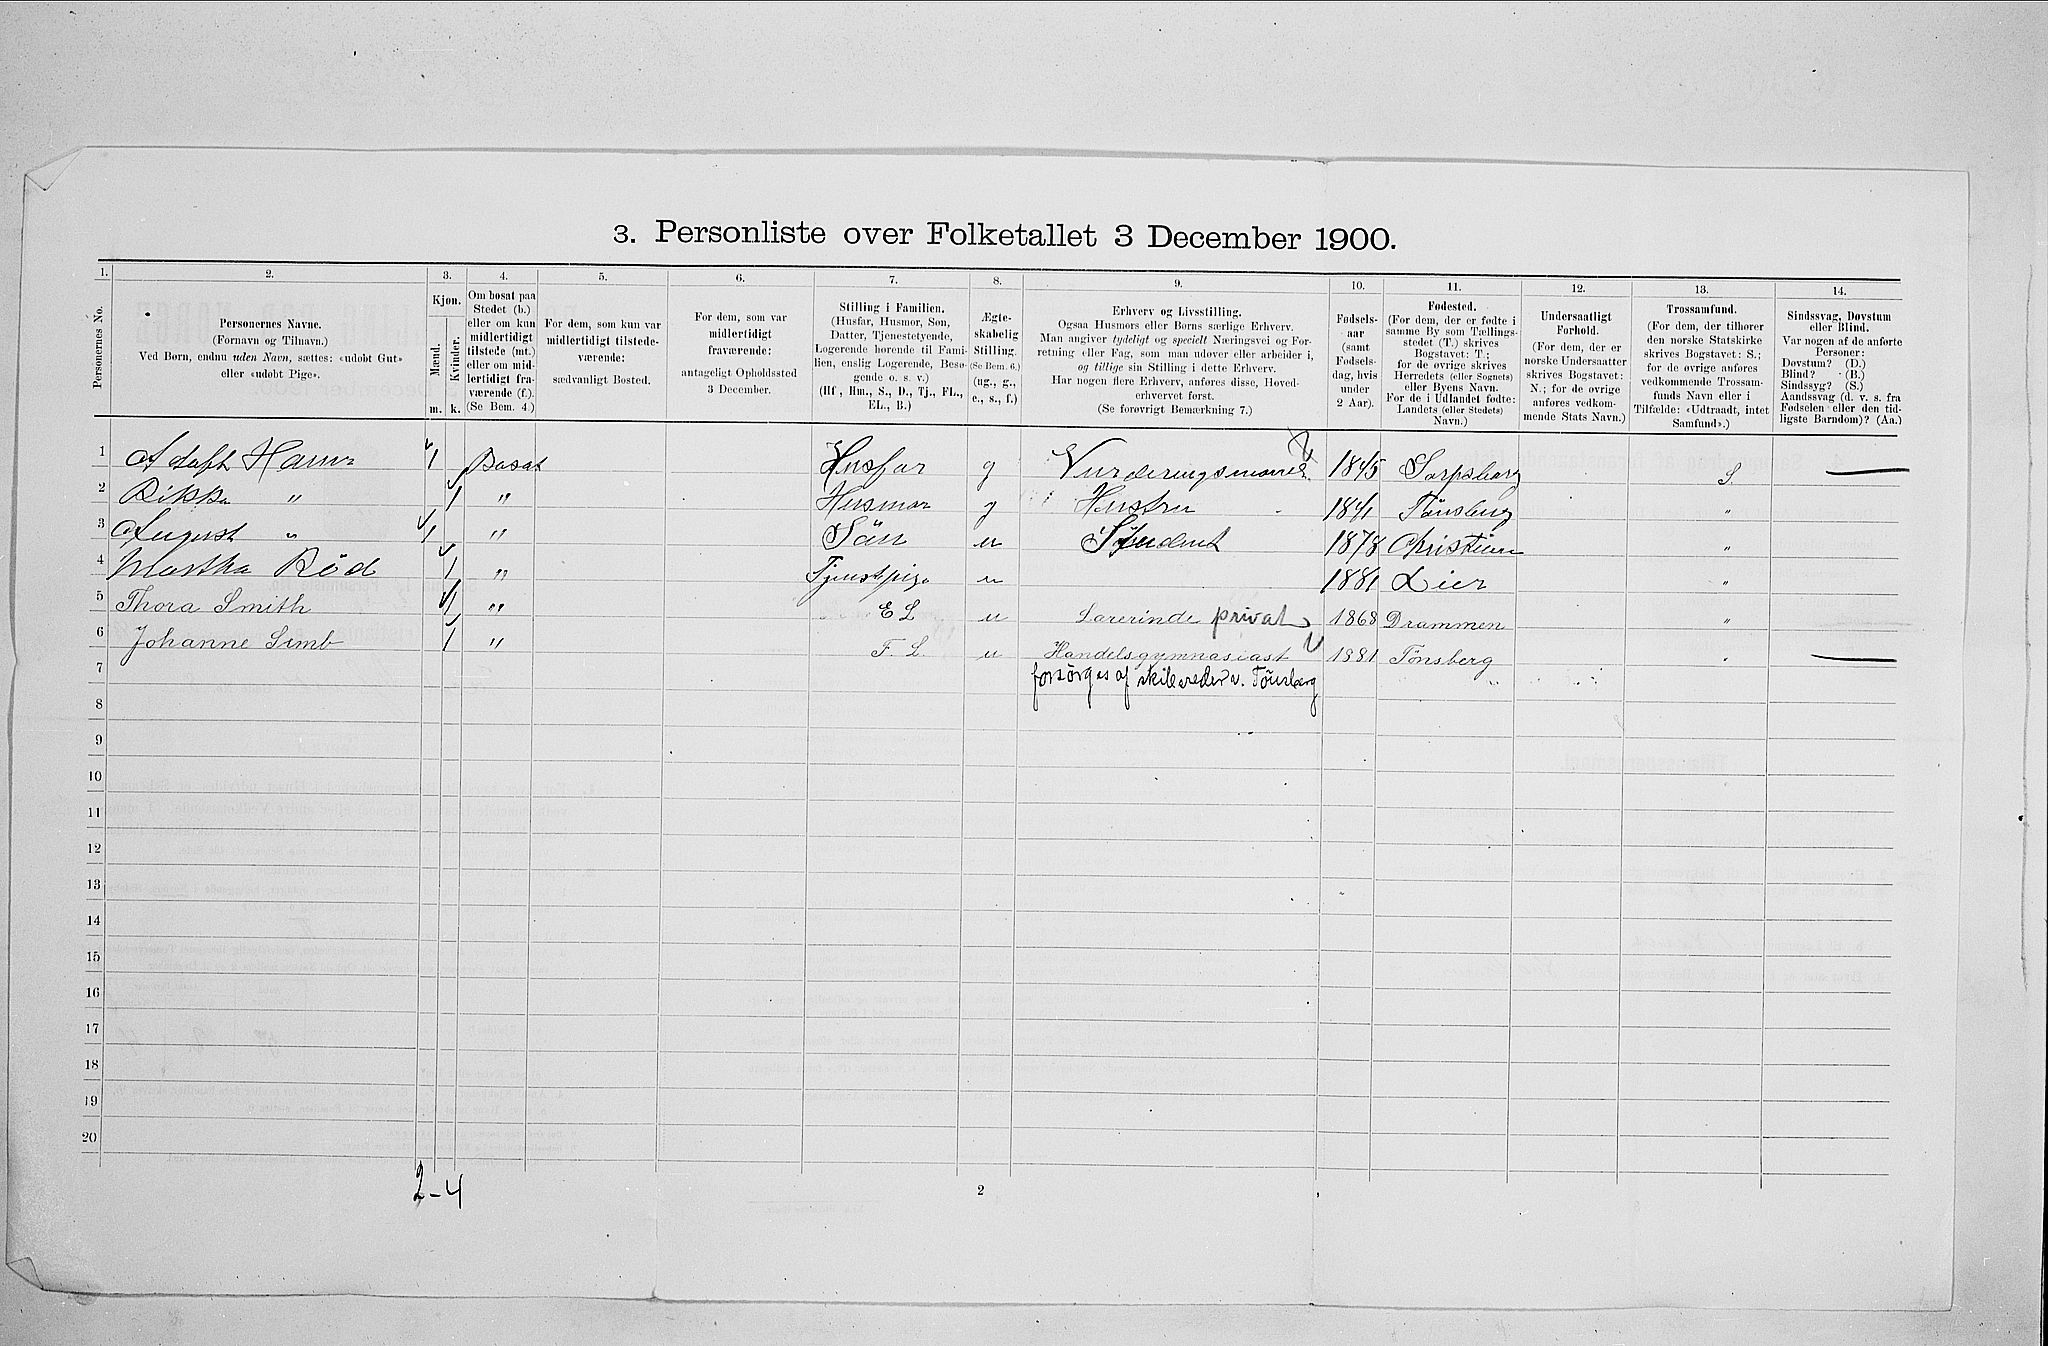 3. Personliste over Folketallet 3 December 1900.
1. 2. 3. 4. 5. 6. 7. 8. 9. 10. 11. 12. 13. 14.
Personernes No.
Personernes Navne.
(Fornavn og Tilnavn.)
Ved Børn, endnu uden Navn, sættes: «udøbt Gut»
eller «udøbt Pige».
Kjøn.
Mænd.
Kvinder.
m. k.
Om bosat paa
Stedet (b.)
eller om kun
midlertidigt
tilstede (mt.)
eller om mid-
lertidigt fra-
værende (f.).
(Se Bem. 4.)
For dem, som kun var
midlertidigt tilstede-
værende:
sædvanligt Bosted.
For dem, som var
midlertidigt
fraværende:
antageligt Opholdssted
3 December.
Stilling i Familien.
(Husfar, Husmor, Søn,
Datter, Tjenestetyende,
Logerende hørende til Fami-
lien, enslig Logerende, Besø-
gende o. s. v.)
(Hf., Hm., S., D., Tj., FL.,
EL., B.)
Ægte-
skabelig
Stilling.
(Se Bem. 6.)
(ug., g.,
e., s., f.)
Erhverv og Livsstilling.
Ogsaa Husmors eller Børns særlige Erhverv.
Man angiver tydeligt og specielt Næringsvei og For-
retning eller Fag, som man udøver eller arbeider i,
og tillige sin Stilling i dette Erhverv.
Har nogen flere Erhverv, anføres disse, Hoved-
erhvervet først.
(Se forøvrigt Bemærkning 7.)
Fødsels-
aar
(samt
Fødsels-
dag, hvis
under
2 Aar).
Fødested.
(For dem, der er fødte i
samme By som Tællings-
stedet (T.) skrives
Bogstavet: T.;
for de øvrige skrives
Herredets (eller Sognets)
eller Byens Navn.
For de i Udlandet fødte:
Landets (eller Stedets)
Navn.)
Undersaatligt
Forhold.
(For dem, der er
norske Undersaatter
skrives Bogstavet:
N.; for de øvrige
anføres vedkom-
mende Stats Navn.)
Trossamfund.
(For dem, der tilhører
den norske Statskirke
skrives Bogstavet: S.;
for de øvrige anføres
vedkommende Trossam-
funds Navn eller i
Tilfælde: «Udtraadt, intet
Samfund».)
Sindssvag, Døvstum
eller Blind.
Var nogen af de anførte
Personer:
Døvstum? (D.)
Blind? (B.)
Sindssyg? (S.)
Aandssvag (d. v. s. fra
Fødselen eller den tid-
ligste Barndom)? (Aa.)
1 Adolf 1 Bosat Husfar g 1845 Sarpsborg S.
2 Rikka " 1 " Husmor g Hustru 1841 Tönsberg "
3 August " 1 " Sön u Student 1878 Christiania "
4 Martha Röd 1 " Tjenstpige u 1881 Lier "
5 Thora Smith 1 " E L u Lærerinde privat 1868 Drammen "
6 Johanne 1 " F. L. u Handelsgymnasiast 1881 Tønsberg "
7 forsörges af skibsreder v. Tönsberg
8
9
10
11
12
13
14
15
16
17
18
19
20
2-4
2